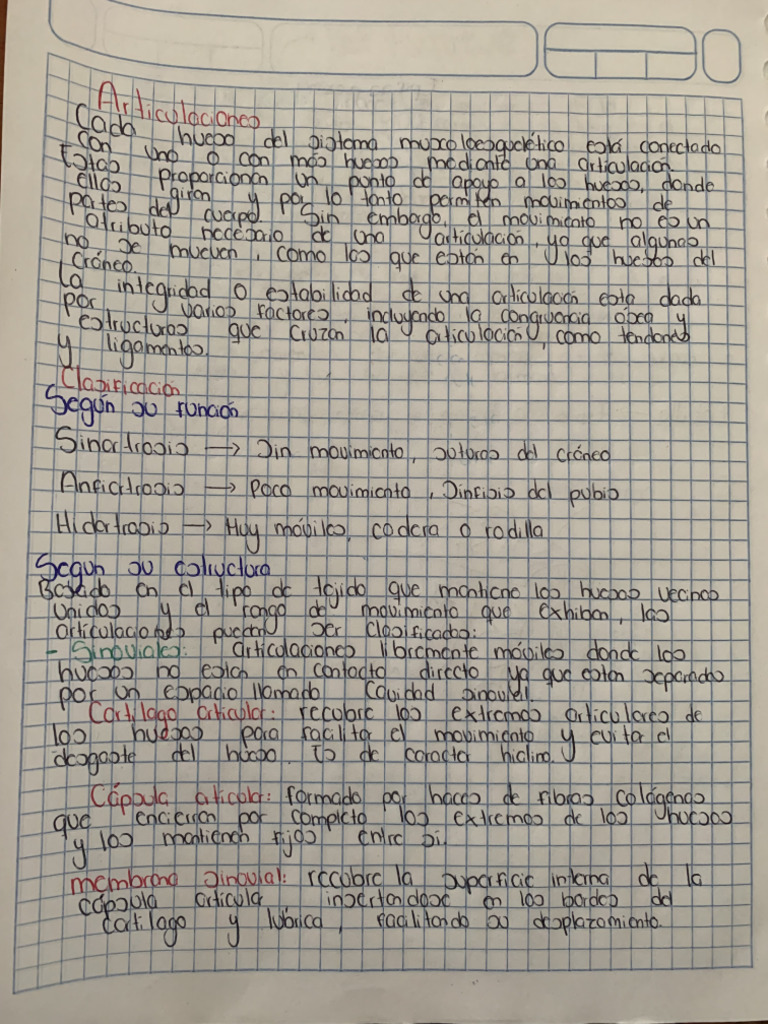 Articulaciones
Cada hueso del sistema muscoloesquelético está conectado
con uno o con más huesos mediante una articulación.
Estas proporcionan un punto de apoyo a los huesos, donde
ellos giran y por lo tanto permiten movimientos de
partes del cuerpo. Sin embargo, el movimiento no es un
atributo necesario de una articulación, ya que algunas
no se mueven, como los que están en los huesos del
cráneo.
La integridad o estabilidad de una articulación esta dada
por varios factores, incluyendo la congruencia ósea y
estructuras que cruzan la articulación, como tendones
y ligamentos.
Clasificación
Según su función
Sinartrosis → Sin movimiento, suturas del cráneo
Anfiartrosis → Poco movimiento, Sinfisis del pubis
Hidartrosis → Muy móviles, codera o rodilla
Segun su estructura
Basado en el tipo de tejido que mantiene los huesos vecinos
unidos y el rango de movimiento que exhiben, las
articulaciones pueden ser clasificados:
- Sinoviales: articulaciones libremente móviles donde los
huesos no estan en contacto directo ya que estan separados
por un espacio llamado Cavidad sinovial
Cartílago articular: recubre los extremos articulares de
los huesos para facilitar el movimiento y evitar el
desgaste del hueso. Es de caracter hialino.
Cápsula articular: formado por haces de fibras colágenas
que encierran por completo los extremos de los huesos
y los mantienen fijos entre si.
membrana sinovial: recubre la superficie interna de la
cápsula articular, insertandose en los bordes del
cartílago y lubrica, facilitando su desplazamiento.